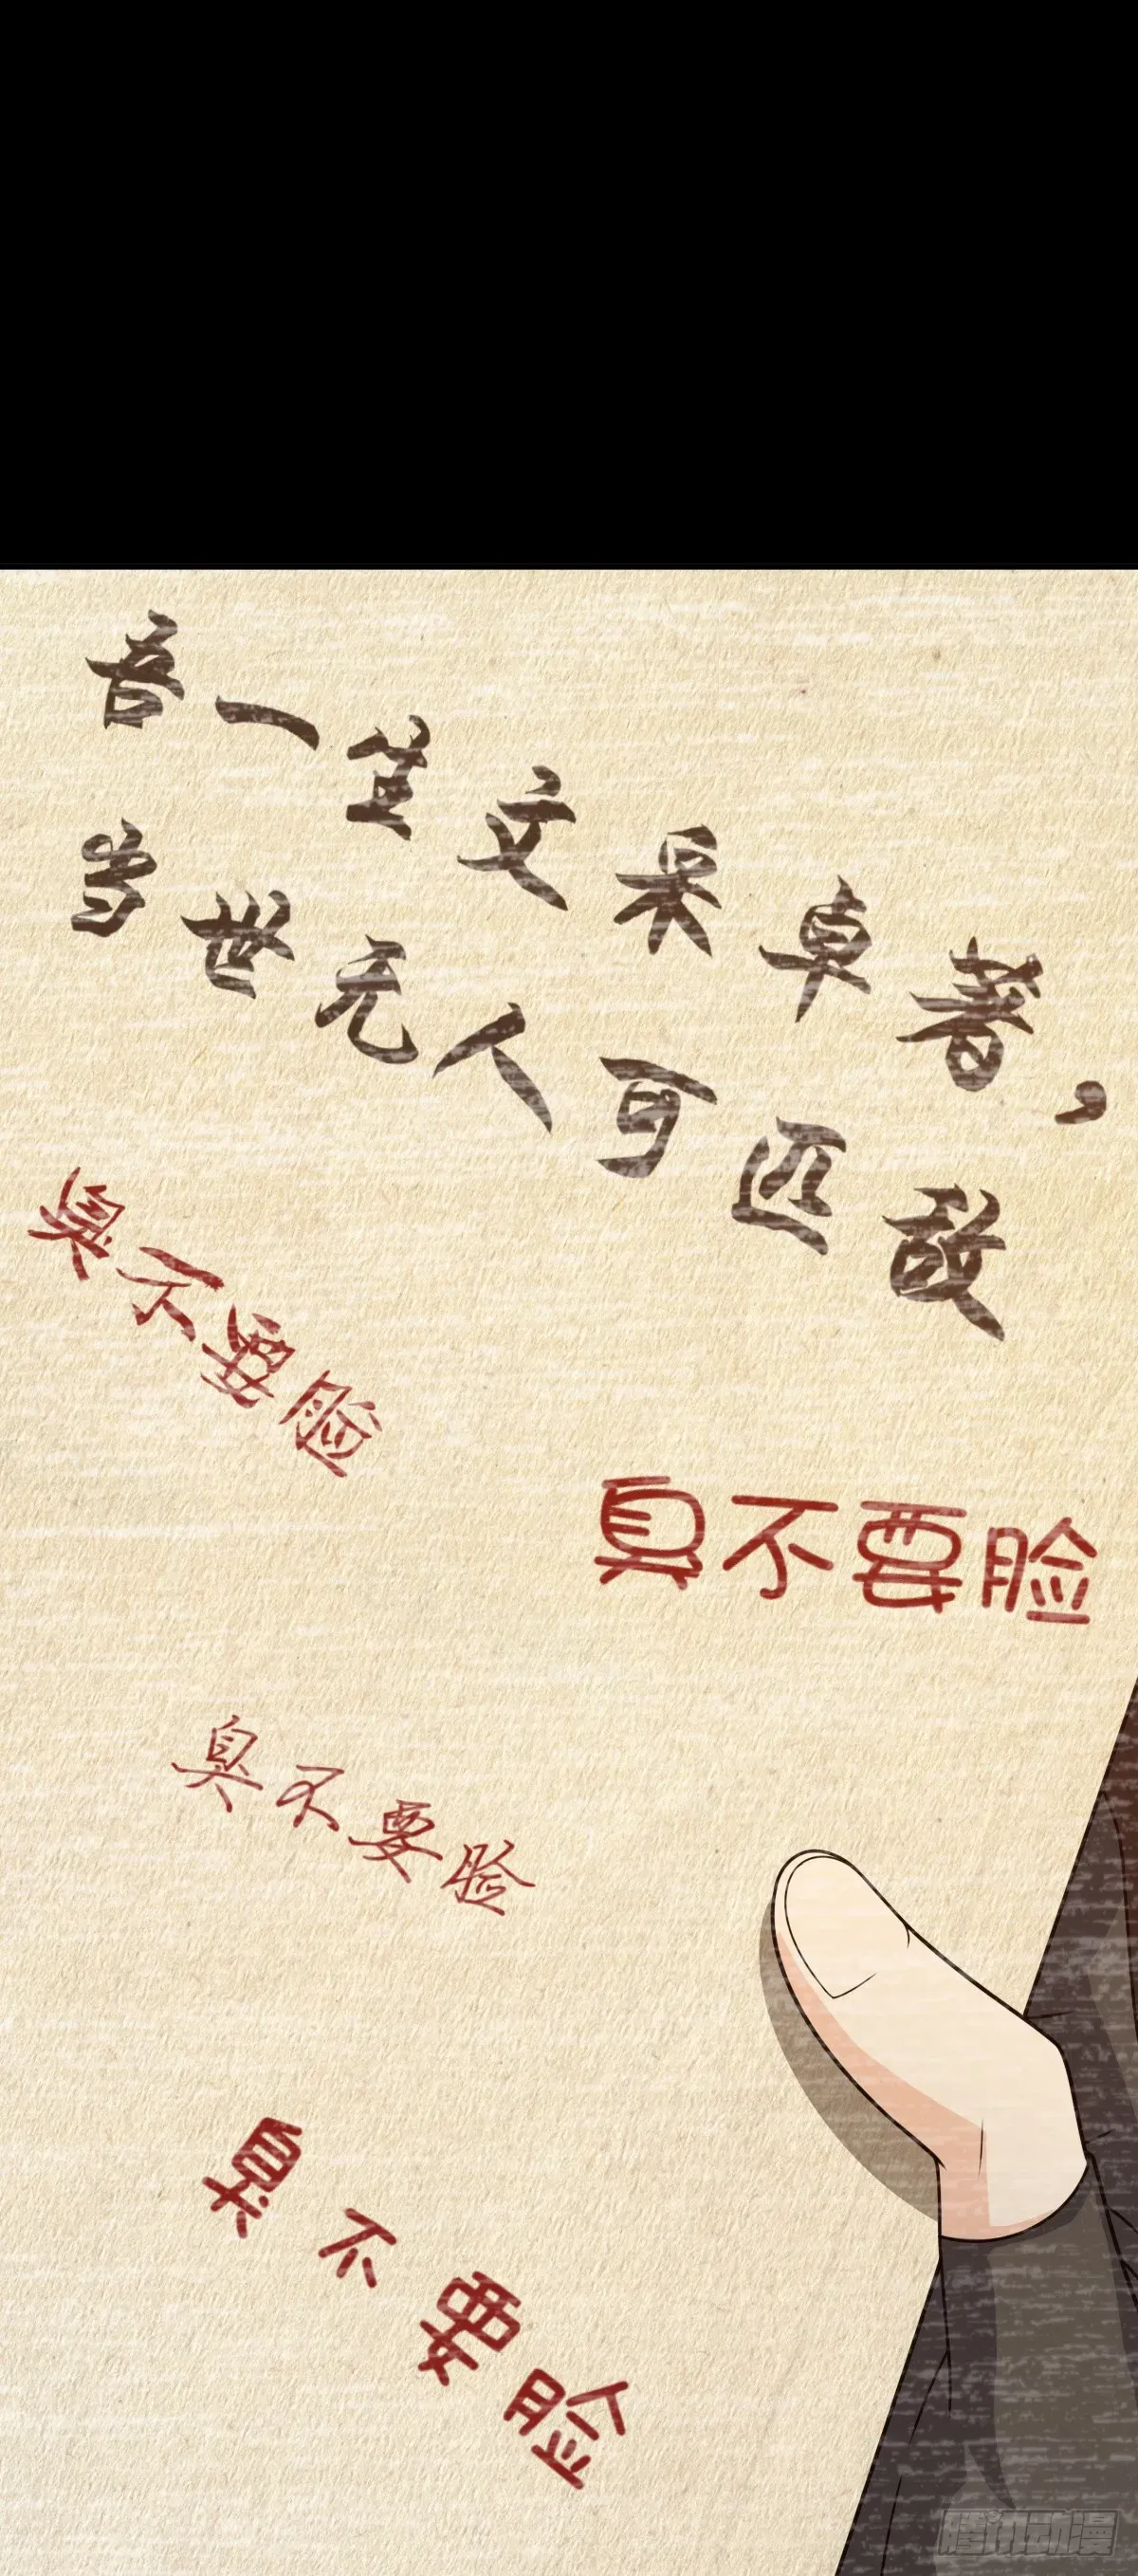 吾一生文采卓著，
当世无人可匹敌
臭不要脸
真不要脸
臭不要脸
臭不要脸
腾讯动漫